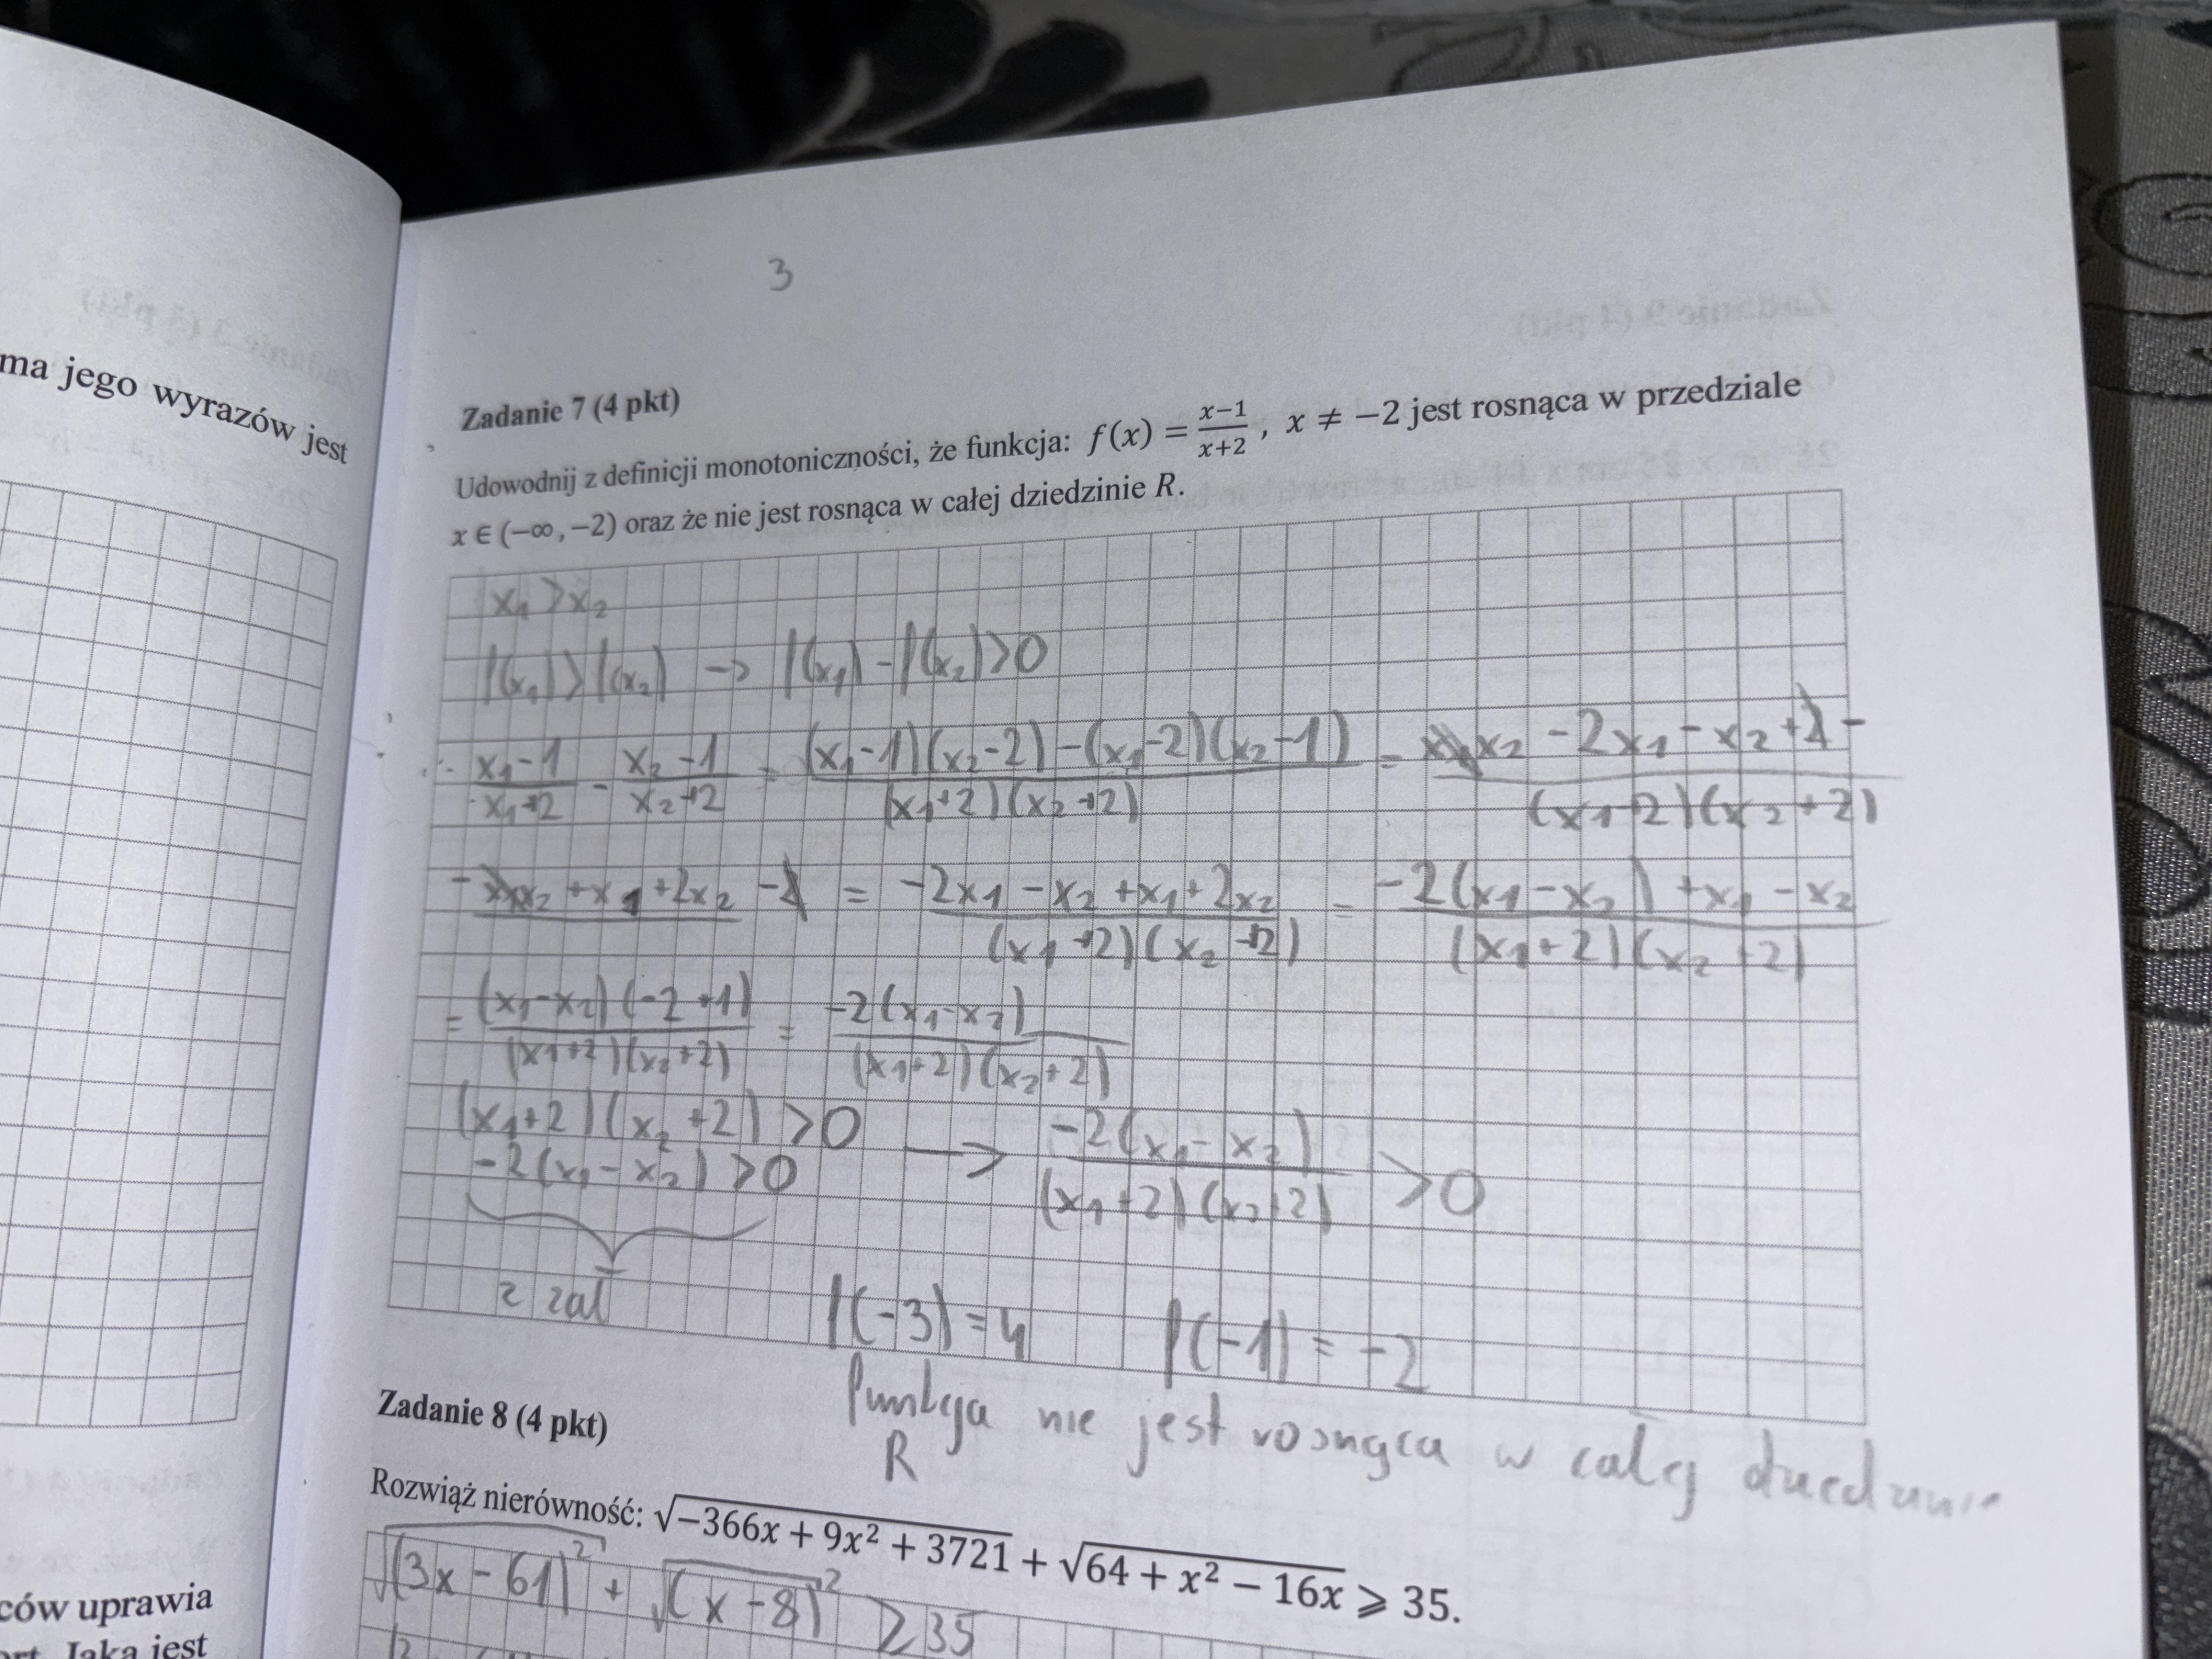 ma jego wyrazów jest
3
Zadanie 7 (4 pkt)
Udowodnij z definicji monotoniczności, że funkcja: f(x) = \frac{x-1}{x+2}, x ≠ −2 jest rosnąca w przedziale
x ∈ (−∞, −2) oraz że nie jest rosnąca w całej dziedzinie R.
x₁ > x₂
f(x₁) > f(x₂) -> f(x₁) - f(x₂) > 0
\frac{x₁-1}{x₁+2} - \frac{x₂-1}{x₂+2} = \frac{(x₁-1)(x₂-2)-(x₁-2)(x₂-1)}{(x₁+2)(x₂+2)} = \frac{x₁x₂ -2x₁ -x₂ +2 -}{(x₁+2)(x₂+2)}
\frac{-x₁x₂ +x₁ +2x₂ -2}{} = \frac{-2x₁ -x₂ +x₁ +2x₂}{(x₁+2)(x₂+2)} = \frac{-2(x₁-x₂) +x₁ -x₂}{(x₁+2)(x₂+2)}
= \frac{(x₁-x₂)(-2+1)}{(x₁+2)(x₂+2)} = \frac{-2(x₁-x₂)}{(x₁+2)(x₂+2)}
(x₁+2)(x₂+2) > 0
-2(x₁-x₂) > 0 -> \frac{-2(x₁-x₂)}{(x₁+2)(x₂+2)} > 0
z zał
f(-3) = 4 f(-1) = -2
Funkcja nie jest rosnąca w całej dziedzinie
R
Zadanie 8 (4 pkt)
Rozwiąż nierówność: √(−366x + 9x² + 3721) + √(64 + x² − 16x) ⩾ 35.
√(3x-61)² + √(x-8)² ≥ 35
ców uprawia
ort. Jaka jest